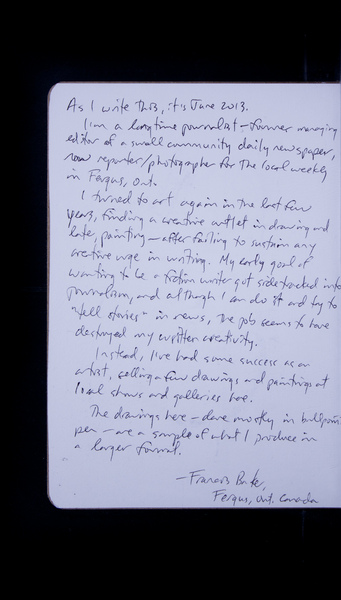 As I write this, it's June 2013.
I'm a longtime journalist – former managing
editor of a small community daily newspaper,
now reporter/photographer for the local weekly
in Fergus, Ont.
I turned to art again in the last few
years, finding a creative outlet in drawing and
late, painting – after failing to sustain any
creative urge in writing. My early goal of
wanting to be a fiction writer got sidetracked into
journalism, and although I can do it and try to
"tell stories" in news, the job seems to have
destroyed my written creativity.
Instead, I've had some success as an
artist, selling a few drawings and paintings at
local shows and galleries here.
The drawings here – done mostly in ballpoint
pen – are a sample of what I produce in
a larger format.
– Francis
Fergus, Ont. Canada